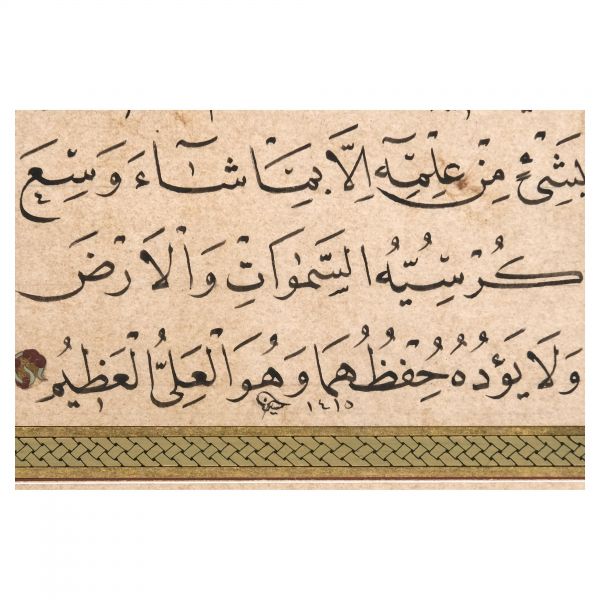 بِشَيْءٍ مِنْ عِلْمِهِ اِلَّا بِمَا شَاءَ وَسِعَ
كُرْسِيُّهُ السَّمٰوَاتِ وَالْاَرْضَ
وَلَا يَؤُدُهُ حِفْظُهُمَا وَهُوَ الْعَلِىُّ الْعَظِيمُ
١٤١٥